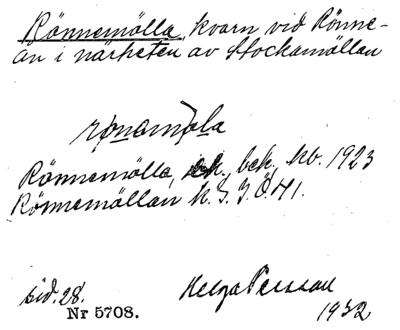 Rönnemölla, kvarn vid Rönne-
ån i närheten av Stockamöllan
rönamöla
Rönnemölla, bek. kb. 1923
Rönnemöllan k. S. J. Ö. H1.
sid. 28.
Helga Persson
Nr 5708.
1932